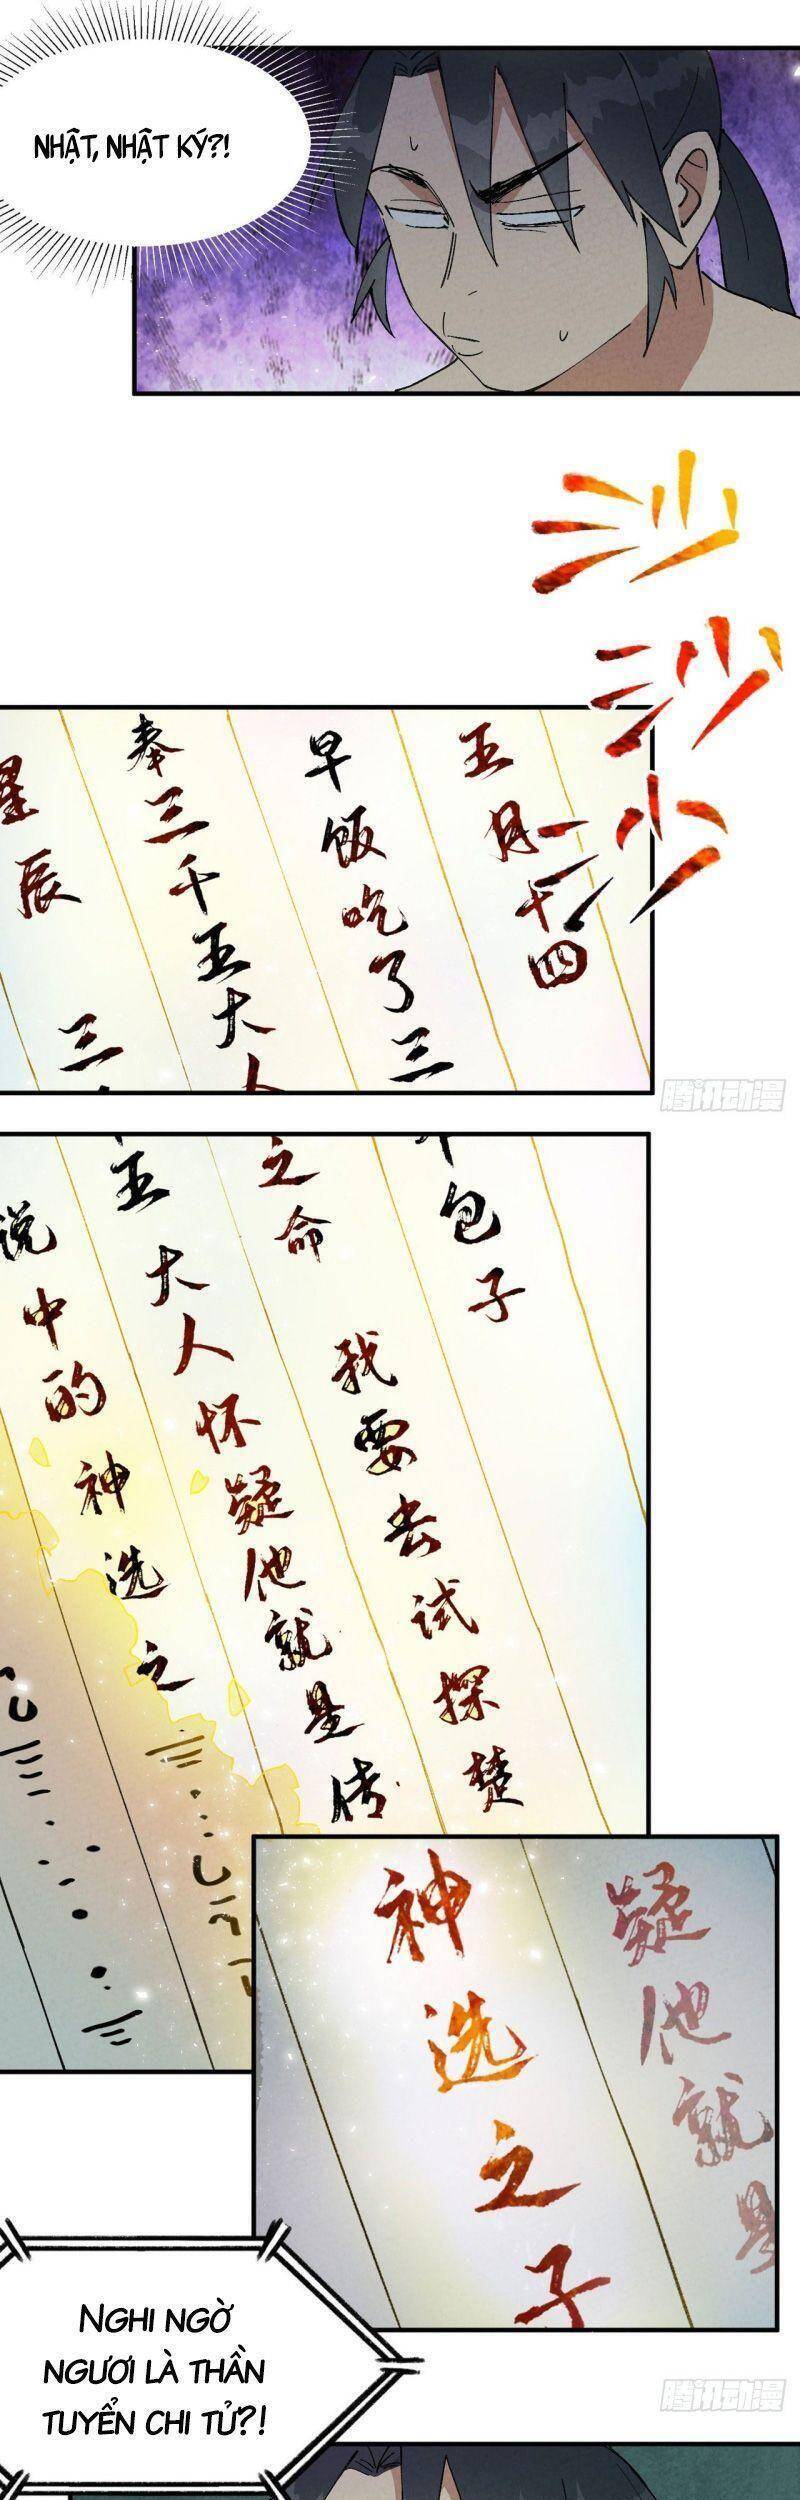 NHẬT, NHẬT KÝ?!
沙
沙
沙
五月十四
早饭吃了三
奉三千五大人
星辰
三
腾讯动漫
包子
我要去试探楚
之命
五大人怀疑他就是传
说中的神选之
疑他就是
神选之子
NGHI NGỜ
NGƯƠI LÀ THẦN
TUYỂN CHI TỬ?!
腾讯动漫